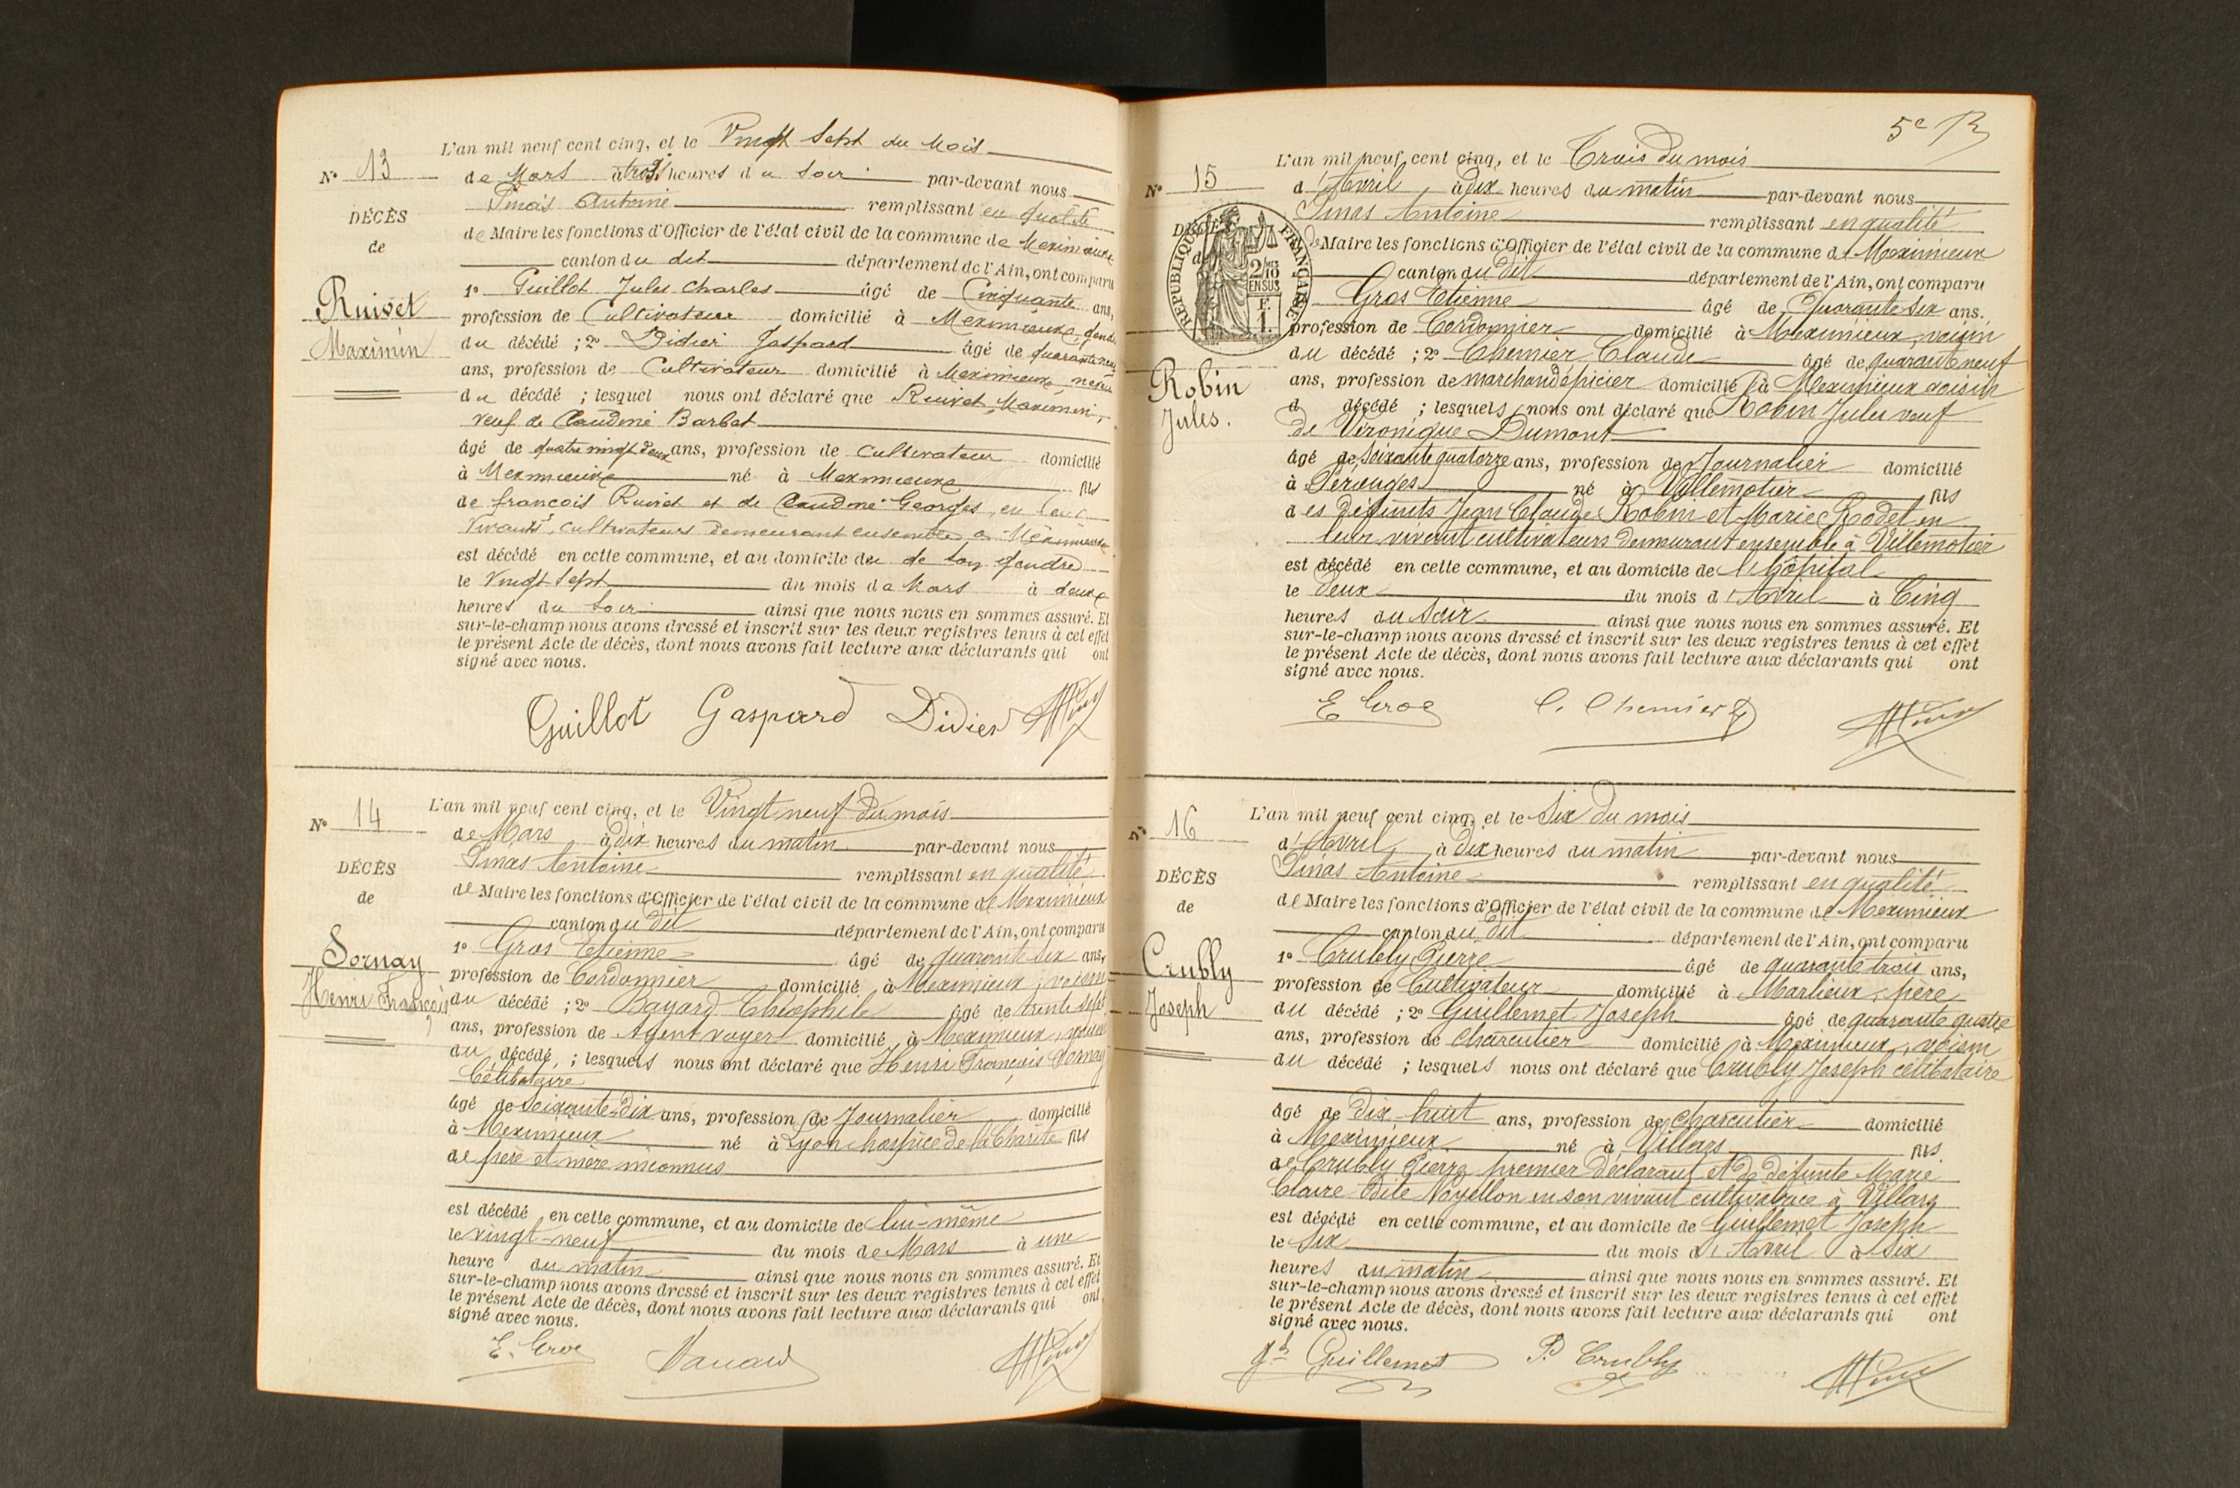 N° 13
DÉCÈS
de
Ruivet
Maximin
L'an mil neuf cent cinq, et le Vingt Sept du Mois
de Mars à trois heures du Soir par-devant nous
Pinas Antoine remplissant en qualité
de Maire les fonctions d'Officier de l'état civil de la commune de Meximieux
canton du dit département de l'Ain, ont comparu
1° Guillot Jules Charles âgé de Cinquante ans,
profession de Cultivateur domicilié à Meximieux, gendre
du décédé ; 2° Didier Gaspard âgé de quarante neuf
ans, profession de Cultivateur domicilié à Meximieux, neveu
du décédé ; lesquel nous ont déclaré que Ruivet, Maximin,
veuf de Claudine Barbet
âgé de quatre vingt deux ans, profession de Cultivateur domicilié
à Meximieux né à Meximieux fils
de françois Ruivet et de Claudine Georges, en leur
Vivants, cultivateurs demeurant ensemble à Meximieux
est décédé en cette commune, et au domicile de de son gendre
le Vingt Sept du mois de Mars à deux
heures du Soir ainsi que nous nous en sommes assuré. Et
sur-le-champ nous avons dressé et inscrit sur les deux registres tenus à cet effet
le présent Acte de décès, dont nous avons fait lecture aux déclarants qui ont
signé avec nous.
Guillot Gaspard Didier
N° 14
DÉCÈS
de
Sornay
Henri François
L'an mil neuf cent cinq, et le Vingt neuf du mois
de Mars à Dix heures du matin par-devant nous
Pinas Antoine remplissant en qualité
de Maire les fonctions d'Officier de l'état civil de la commune de Meximieux
canton du dit département de l'Ain, ont comparu
1° Gros Etienne âgé de quarante six ans,
profession de Cordonnier domicilié à Meximieux, voisin
du décédé ; 2° Bayard Théophile âgé de trente sept
ans, profession de Agent voyer domicilié à Meximieux, voisin
du décédé ; lesquels nous ont déclaré que Henri François Sornay
Célibataire
âgé de soixante-Dix ans, profession de Journalier domicilié
à Meximieux né à Lyon hospice de la Charité fils
de père et mère inconnus
est décédé en cette commune, et au domicile de lui-même
le vingt-neuf du mois de Mars à une
heure du matin ainsi que nous nous en sommes assuré. Et
sur-le-champ nous avons dressé et inscrit sur les deux registres tenus à cet effet
le présent Acte de décès, dont nous avons fait lecture aux déclarants qui ont
signé avec nous.
E. Gros
5e
N° 15
DÉCÈS
d
RÉPUBLIQUE FRANÇAISE
2/10
EN SUS
F.
1.
Robin
Jules.
L'an mil neuf cent cinq, et le Trois du mois
d'Avril à Dix heures du matin par-devant nous
Pinas Antoine remplissant en qualité
de Maire les fonctions d'Officier de l'état civil de la commune de Meximieux
canton du dit département de l'Ain, ont comparu
Gros Etienne âgé de Quarante six ans.
profession de Cordonnier domicilié à Meximieux, voisin
du décédé ; 2° Chemier Claude âgé de quarante neuf
ans, profession de marchand épicier domicilié à Meximieux voisin
d décédé ; lesquels nous ont déclaré que Robin Jules veuf
de Véronique Dumont
âgé de soixante quatorze ans, profession de Journalier domicilié
à Pérouges né à Villemotier fils
des défunts Jean Claude Robin et Marie Rodet en
leur vivant cultivateurs demeurant ensemble à Villemotier
est décédé en cette commune, et au domicile de l'hôpital
le Deux du mois d'Avril à Cinq
heures du Soir ainsi que nous nous en sommes assuré. Et
sur-le-champ nous avons dressé et inscrit sur les deux registres tenus à cet effet
le présent Acte de décès, dont nous avons fait lecture aux déclarants qui ont
signé avec nous.
E Gros C. Chemier
N° 16
DÉCÈS
de
Crubly
Joseph
L'an mil neuf cent cinq, et le Six du mois
d'Avril à Dix heures du matin par-devant nous
Pinas Antoine remplissant en qualité
de Maire les fonctions d'Officier de l'état civil de la commune de Meximieux
canton du dit département de l'Ain, ont comparu
1° Crubly Pierre âgé de quarante trois ans,
profession de Cultivateur domicilié à Marlieux, père
du décédé ; 2° Guillemet Joseph âgé de quarante quatre
ans, profession de Charcutier domicilié à Meximieux, voisin
du décédé ; lesquels nous ont déclaré que Crubly Joseph célibataire
âgé de Dix-huit ans, profession de charcutier domicilié
à Meximieux né à Villars fils
de Crubly Pierre premier déclarant et de défunte Marie
Claire dite Noyellon en son vivant cultivatrice à Villars
est décédé en cette commune, et au domicile de Guillemet Joseph
le Six du mois d'Avril à Six
heures du matin ainsi que nous nous en sommes assuré. Et
sur-le-champ nous avons dressé et inscrit sur les deux registres tenus à cet effet
le présent Acte de décès, dont nous avons fait lecture aux déclarants qui ont
signé avec nous.
Jh Guillemet P. Crubly